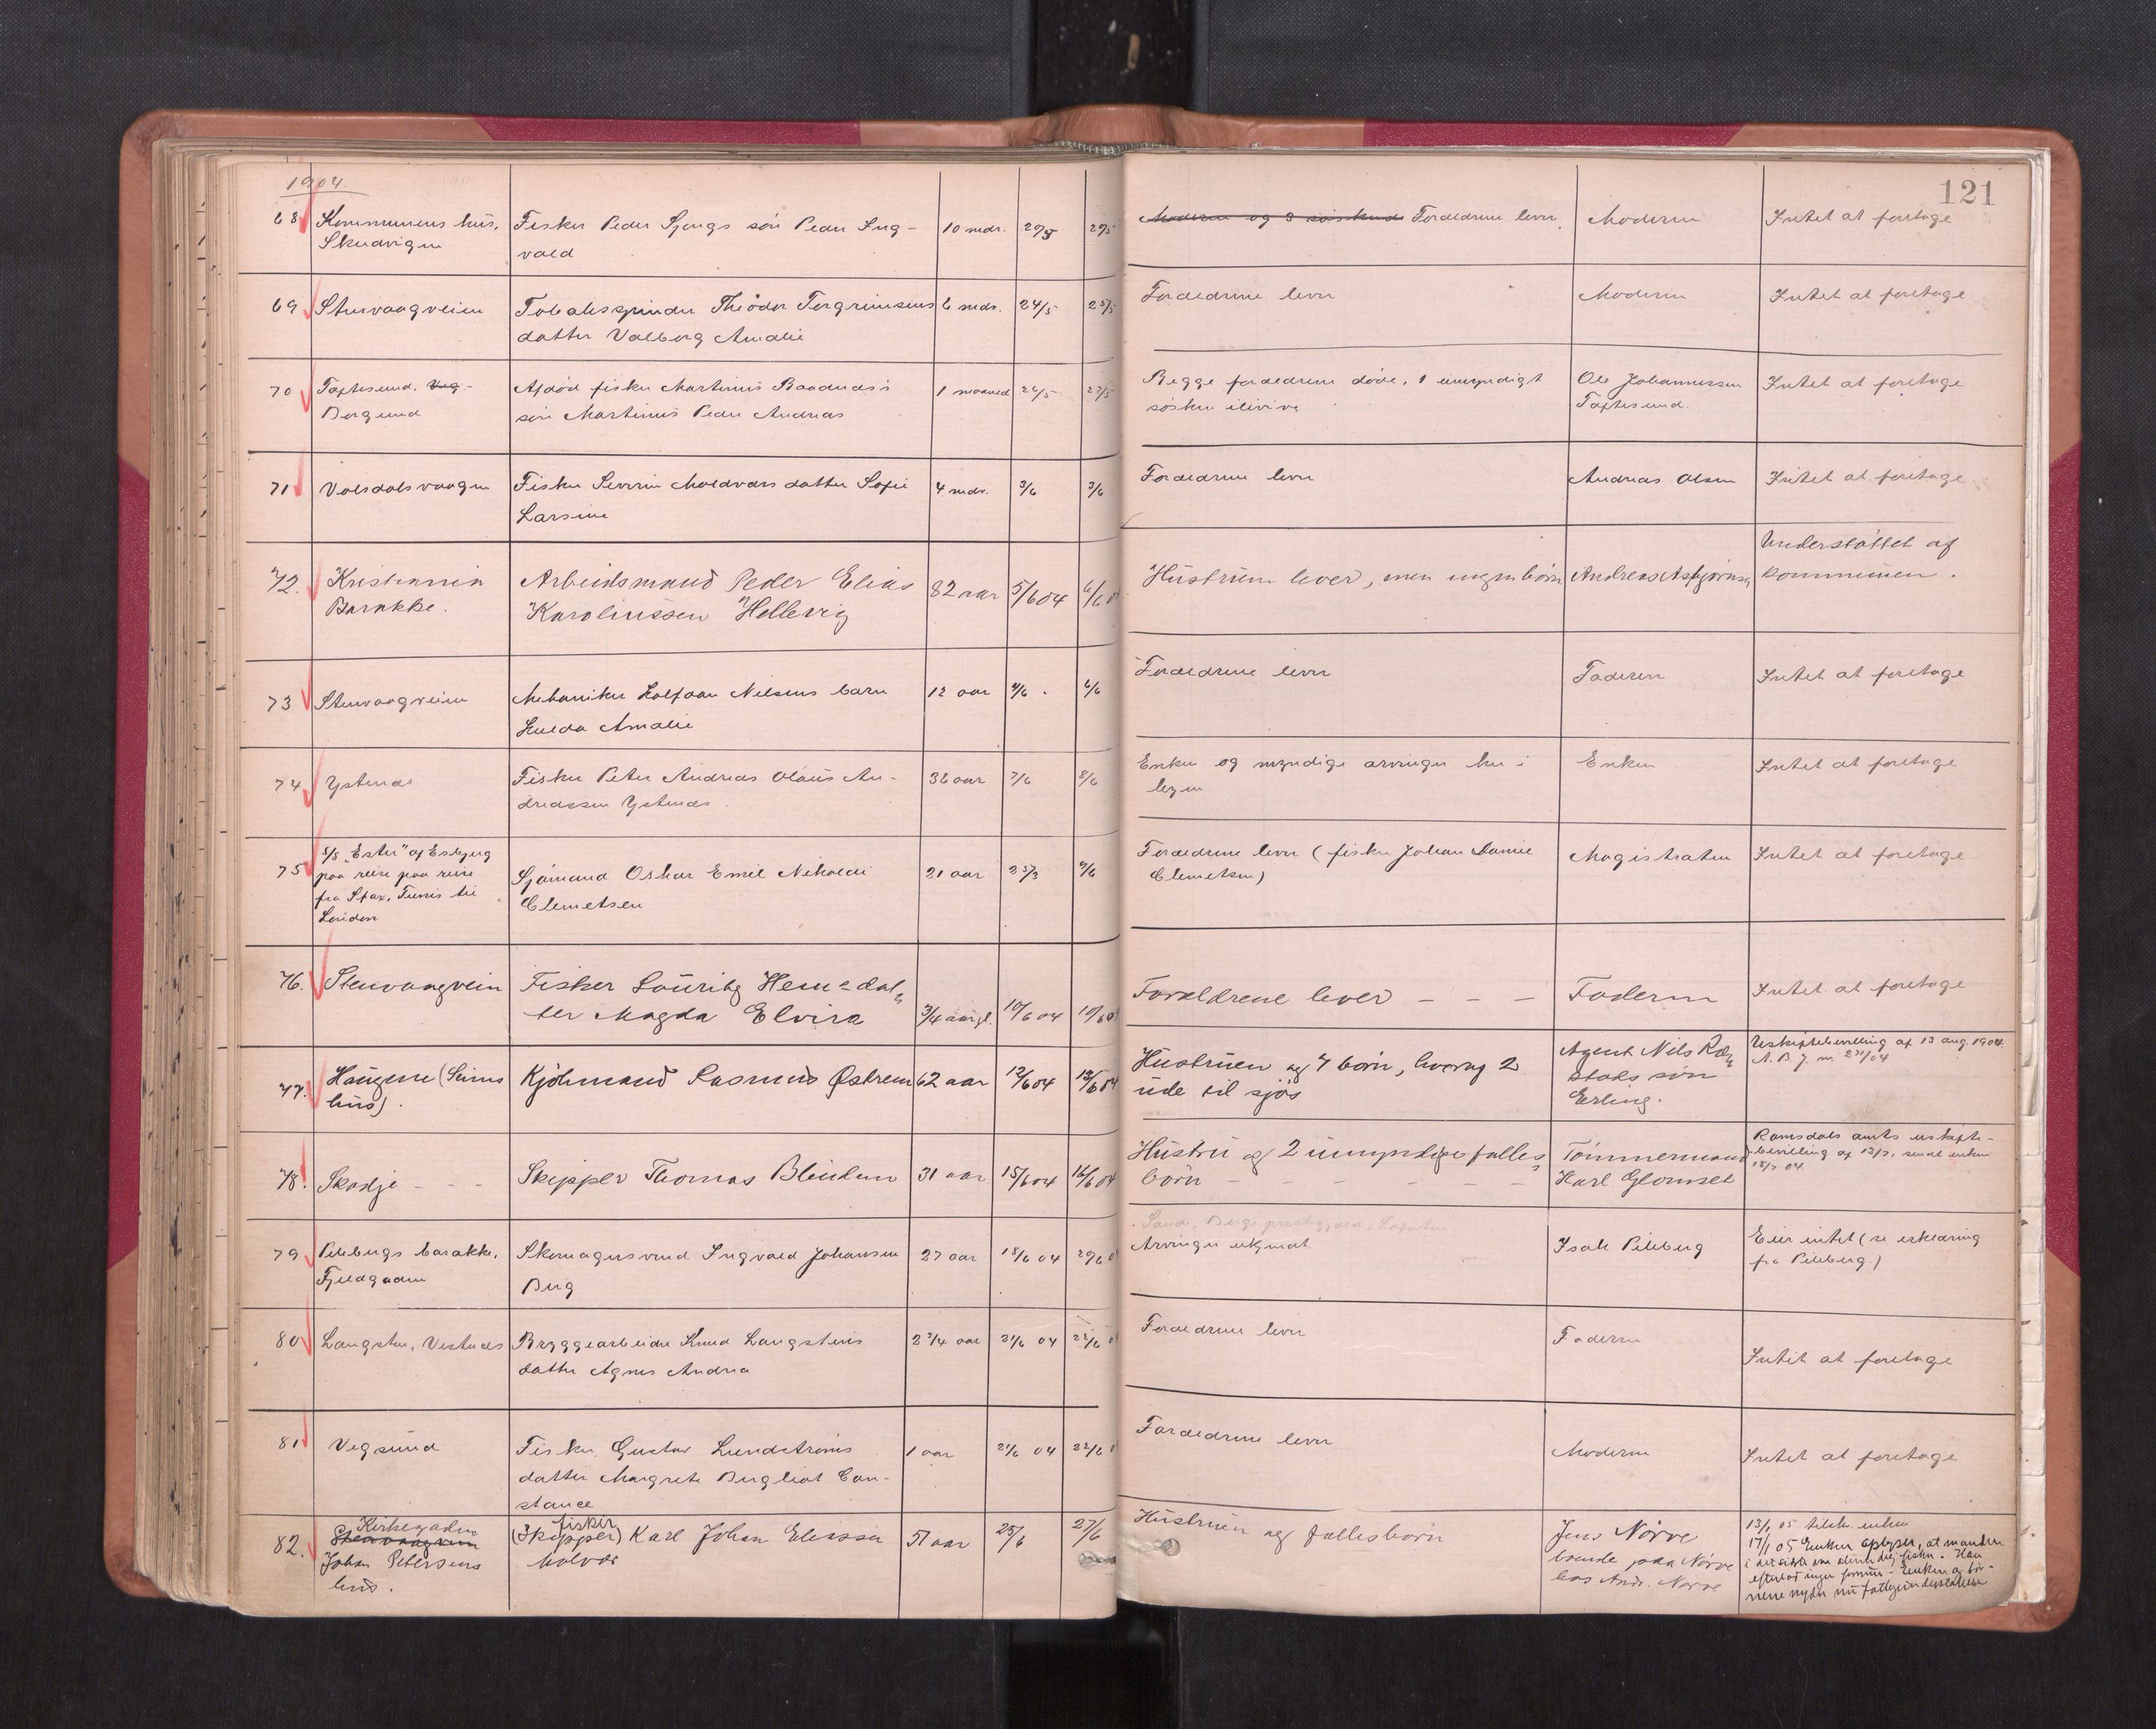 1904.
121
68 Kommunens hus, Fisker Peder Sjongs søn Peder Ing- 10 mdr. 29/5 29/5 Moderen og 3 søskende Forældrene lever. Moderen Intet at foretage
Skudvigen vald
69 Stenvaagveien Tobakspinder Theodor Torgrimsens 6 mdr. 24/5 25/5 Forældrene lever Moderen Intet at foretage
datter Valborg Amalie
70 Taftesund. Veg- Afdød fisker Martinus Baadnæs's 1 maaned 26/5 27/5 Begge forældrene døde, 1 umyndigt Ole Johannessen Intet at foretage
Borgund søn Martinus Peder Andreas søsken ilive Taftesund.
71 Volsdalsvaagen Fisker Severin Moldværs datter Sofie 4 mdr. 3/6 3/6 Forældrene lever Andreas Olsen Intet at foretage
Larsine
Understøttet af
72. Kristiania Arbeidsmand Peder Elias 82 aar 5/6 04 6/6 0 Hustruen lever, men ingen børn Andreas Asbjørnsen kommunen.
Barakke. Karolinssen Hellevig
73 Stenvaagveien Mekaniker Halfdan Nilsens barn 12 aar 4/6 . 6/6 Forældrene lever Faderen Intet at foretage
Hulda Amalie
74 Ystenæs Fisker Peter Andreas Olaus An- 36 aar 7/6 8/6 Enken og myndige arvinger her i Enken Intet at foretage
dreassen Ystenæs byen
75 S/S "Ester" af Esbjerg Sjømand Oskar Emil Nikolai 21 aar 23/3 9/6 Forældrene lever (fisker Johan Daniel Magistraten Intet at foretage
paa reise paa reise Clemetsen Clemetsen)
fra Sfax, Tunis til
London
76. Stenvaagveien Fisker Lauritz Hem = dat= 3/4 aar gl. 10/6 04 10/6 0 Forældrene lever – – – Faderen Intet at foretage
ter Magda Elvira
77. Haugene (Seims Kjømand Rasmus Østrem 62 aar 12/6 04 13/6 04 Hustruen og 4 børn, hvoraf 2 Agent Nils Røb= Uskiftebevilling af 13 aug. 1904.
hus). ude til sjøs staks søn A. B. J. nr. 271/04
Erling.
78. Skodje – – – Skipper Thomas Blindem 31 aar 15/6 04 16/6 04 Hustru og 2 umyndige fælles= Tømmermand Romsdals amts uskifte-
børn – – – – – – Karl Glomset bevilling af 13/7, sendt enken
18/7 04.
79 Pileberg's barakke, Skomagersvend Ingvald Johansen 27 aar 18/6 04 20/6 0 Sand, Bergs prestegjæld, Lofoten Isak Pileberg Eier intet (se erklæring
Fjeldgaden Berg Arvinger ukjendt. fra Pileberg)
80 Langsten, Vestnæs Bryggearbeider Knud Langstens 2 3/4 aar 21/6 04 22/6 0 Forældrene lever Faderen Intet at foretage
datter Agnes Andrea
81 Vegsund Fisker Gustav Lundstrøms 1 aar 21/6 04 22/6 0 Forældrene lever Moderen Intet at foretage
datter Margrete Bergliot Con-
stance
82. Kirkegaden fisker 27/6 Hustruen og fællesbørn Jens Nørve 13/1 05 tilsk. enken
Stenvaagveien (Skipper) Karl Johan Eliassen 51 aar 25/6 boende paa Nørve 17/1 05 Enken oplyser, at manden
Johan Petersens Molvær hos Andr. Nørve i det sidste var almindelig fisker. Han
hus. efterlod ingen formue – Enken og bør-
nene nyder nu fattigunderstøttelse